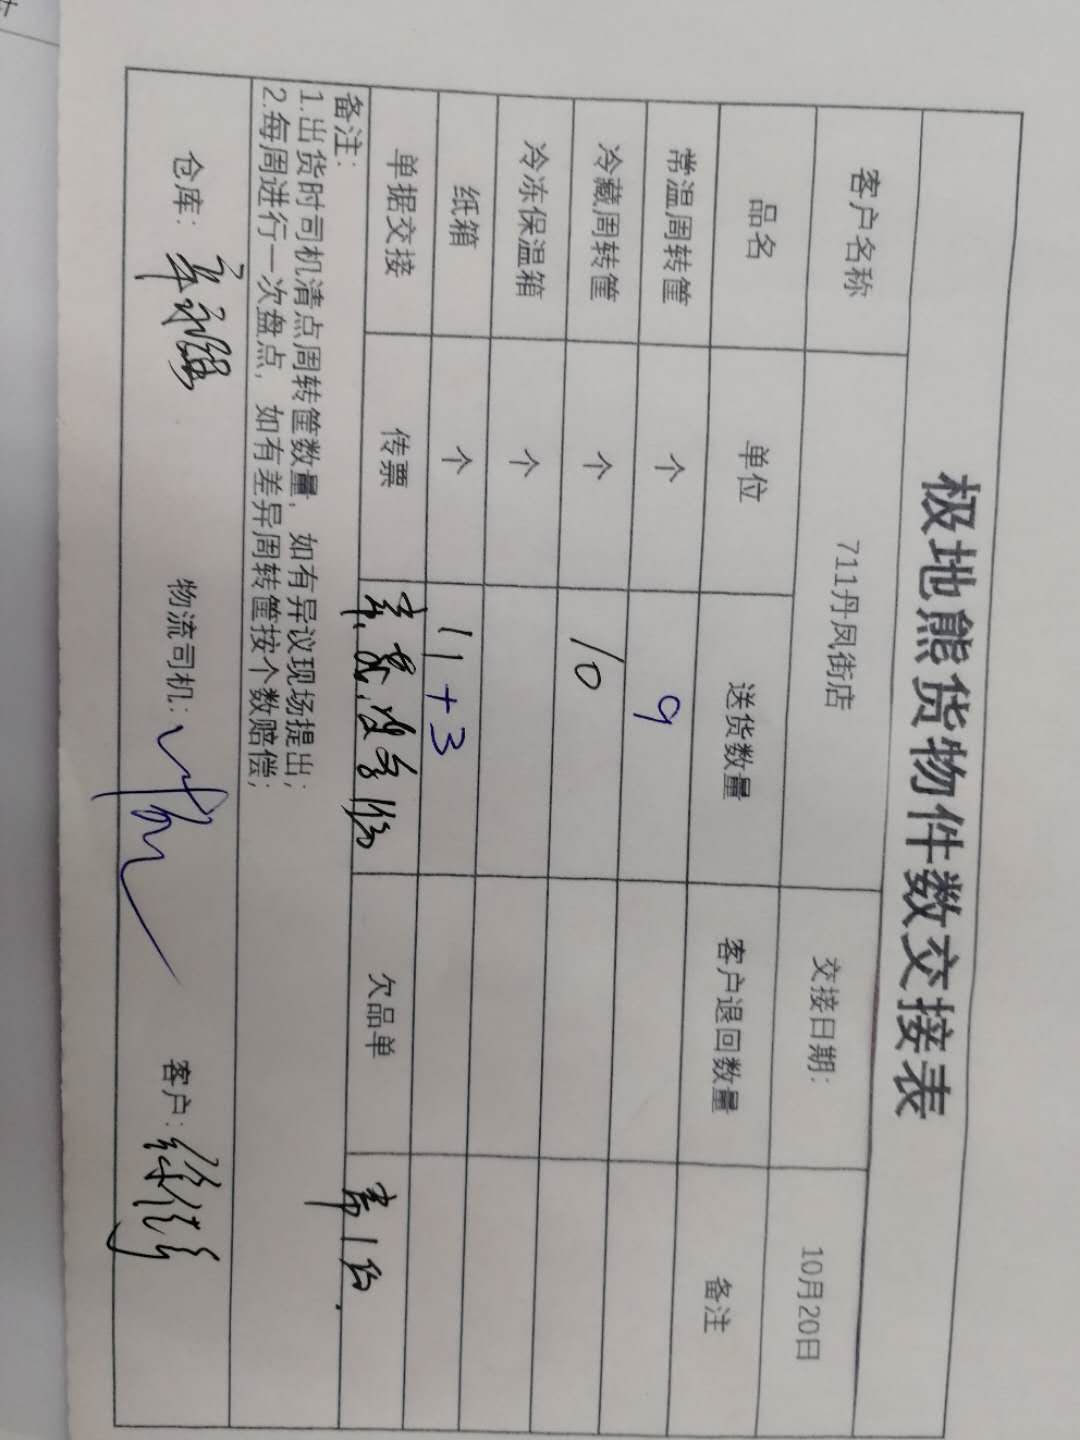 极地熊货物件数交接表
客户名称 711丹凤街店 交接日期: 10月20日
品名 单位 送货数量 客户退回数量 备注
常温周转筐 个 9
冷藏周转筐 个 10
冷冻保温箱 个
纸箱 个 11+3
单据交接 传票 欠品单 常1份.
备注:
1.出货时司机清点周转筐数量, 如有异议现场提出;
2.每周进行一次盘点, 如有差异周转筐按个数赔偿;
仓库: 物流司机: 客户: